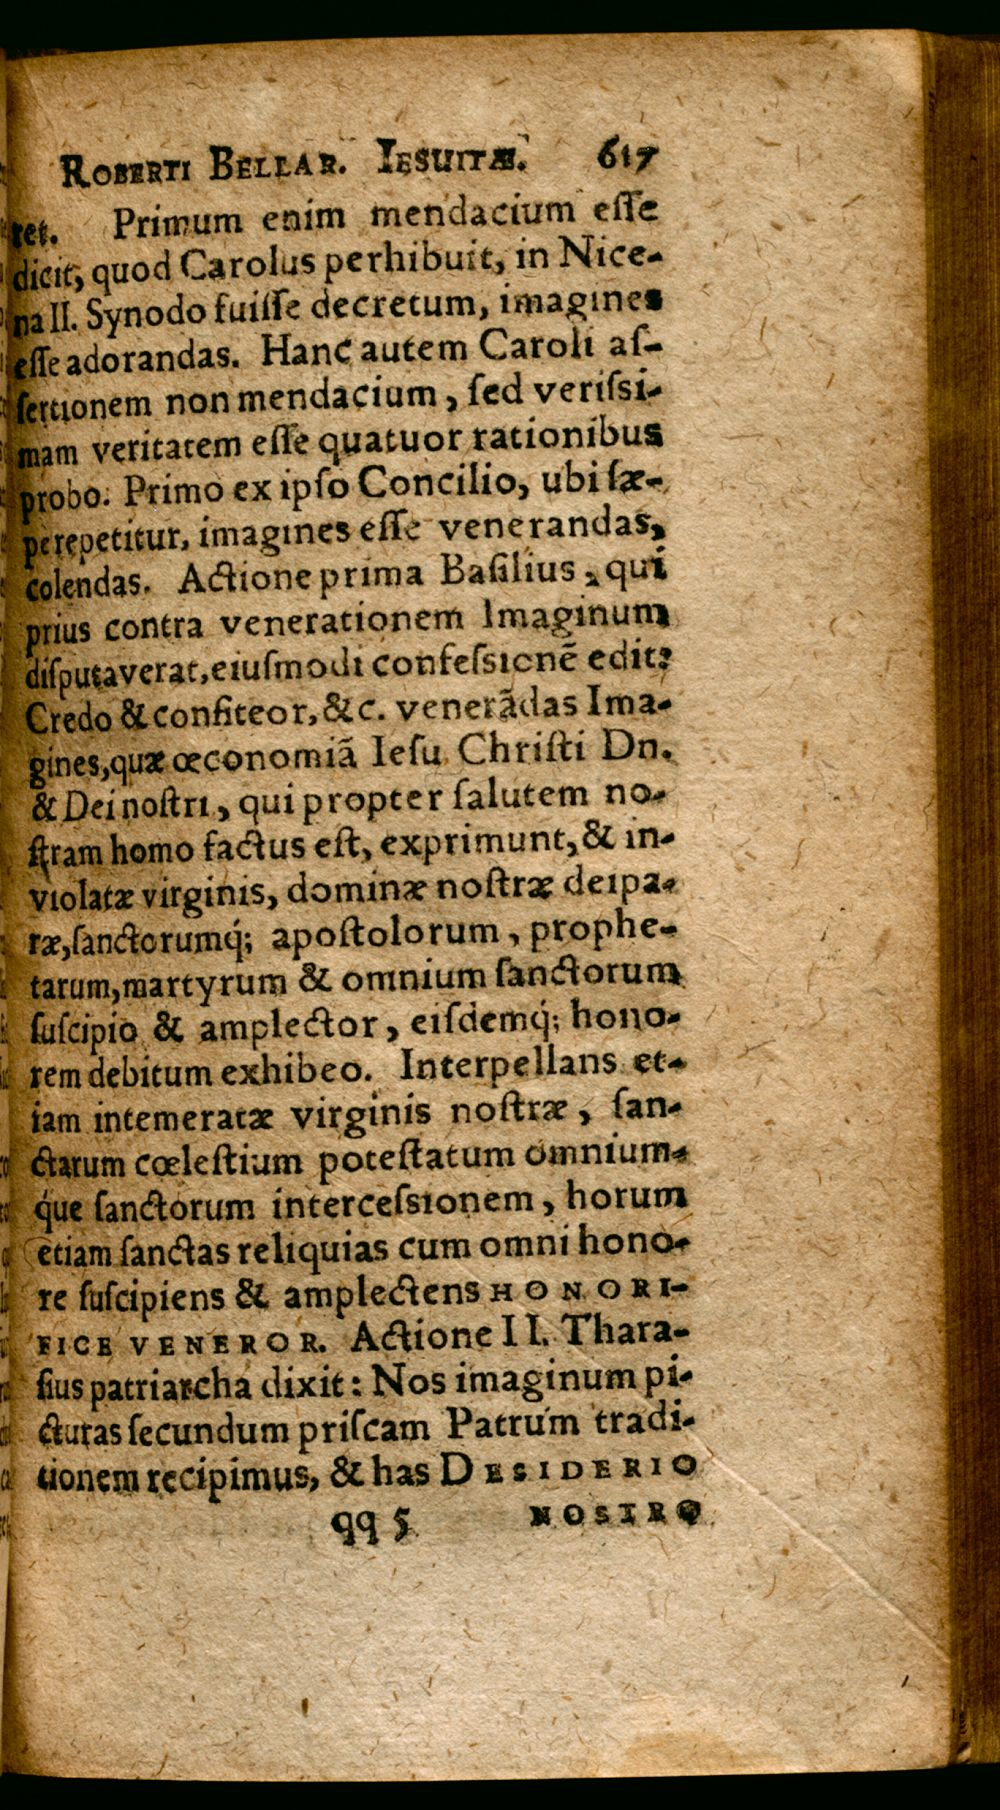 ROBERTI BELLAR. IESUITÆ. 617
ret. Primum enim mendacium eſſe
dicit, quod Carolus perhibuit, in Nice-
na II. Synodo fuiſſe decretum, imagines
eſſe adorandas. Hanc autem Caroli aſ-
ſertionem non mendacium, ſed veriſsi-
mam veritatem eſſe quatuor rationibus
probo. Primo ex ipſo Concilio, ubi ſæ-
pe repetitur, imagines eſſe venerandas,
colendas. Actione prima Baſilius, qui
prius contra venerationem Imaginum
diſputaverat, eiuſmodi confeſsionẽ edit:
Credo & confiteor, &c. venerãdas Ima-
gines, quæ œconomiã Ieſu Chriſti Dn.
& Dei noſtri, qui propter ſalutem no-
ſtram homo factus eſt, exprimunt, & in-
violatæ virginis, dominæ noſtræ deipa-
ræ, ſanctorumq́; apoſtolorum, prophe-
tarum, martyrum & omnium ſanctorum
ſuſcipio & amplector, eiſdemq́; hono-
rem debitum exhibeo. Interpellans et-
iam intemeratæ virginis noſtræ, ſan-
ctarum cœleſtium poteſtatum omnium-
q́ue ſanctorum interceſsionem, horum
etiam ſanctas reliquias cum omni hono-
re ſuſcipiens & amplectens HONORI-
FICE VENEROR. Actione II. Thara-
ſius patriarcha dixit: Nos imaginum pi-
cturas ſecundum priſcam Patrum tradi-
tionem recipimus, & has DESIDERIO
qq 5 NOSTRO